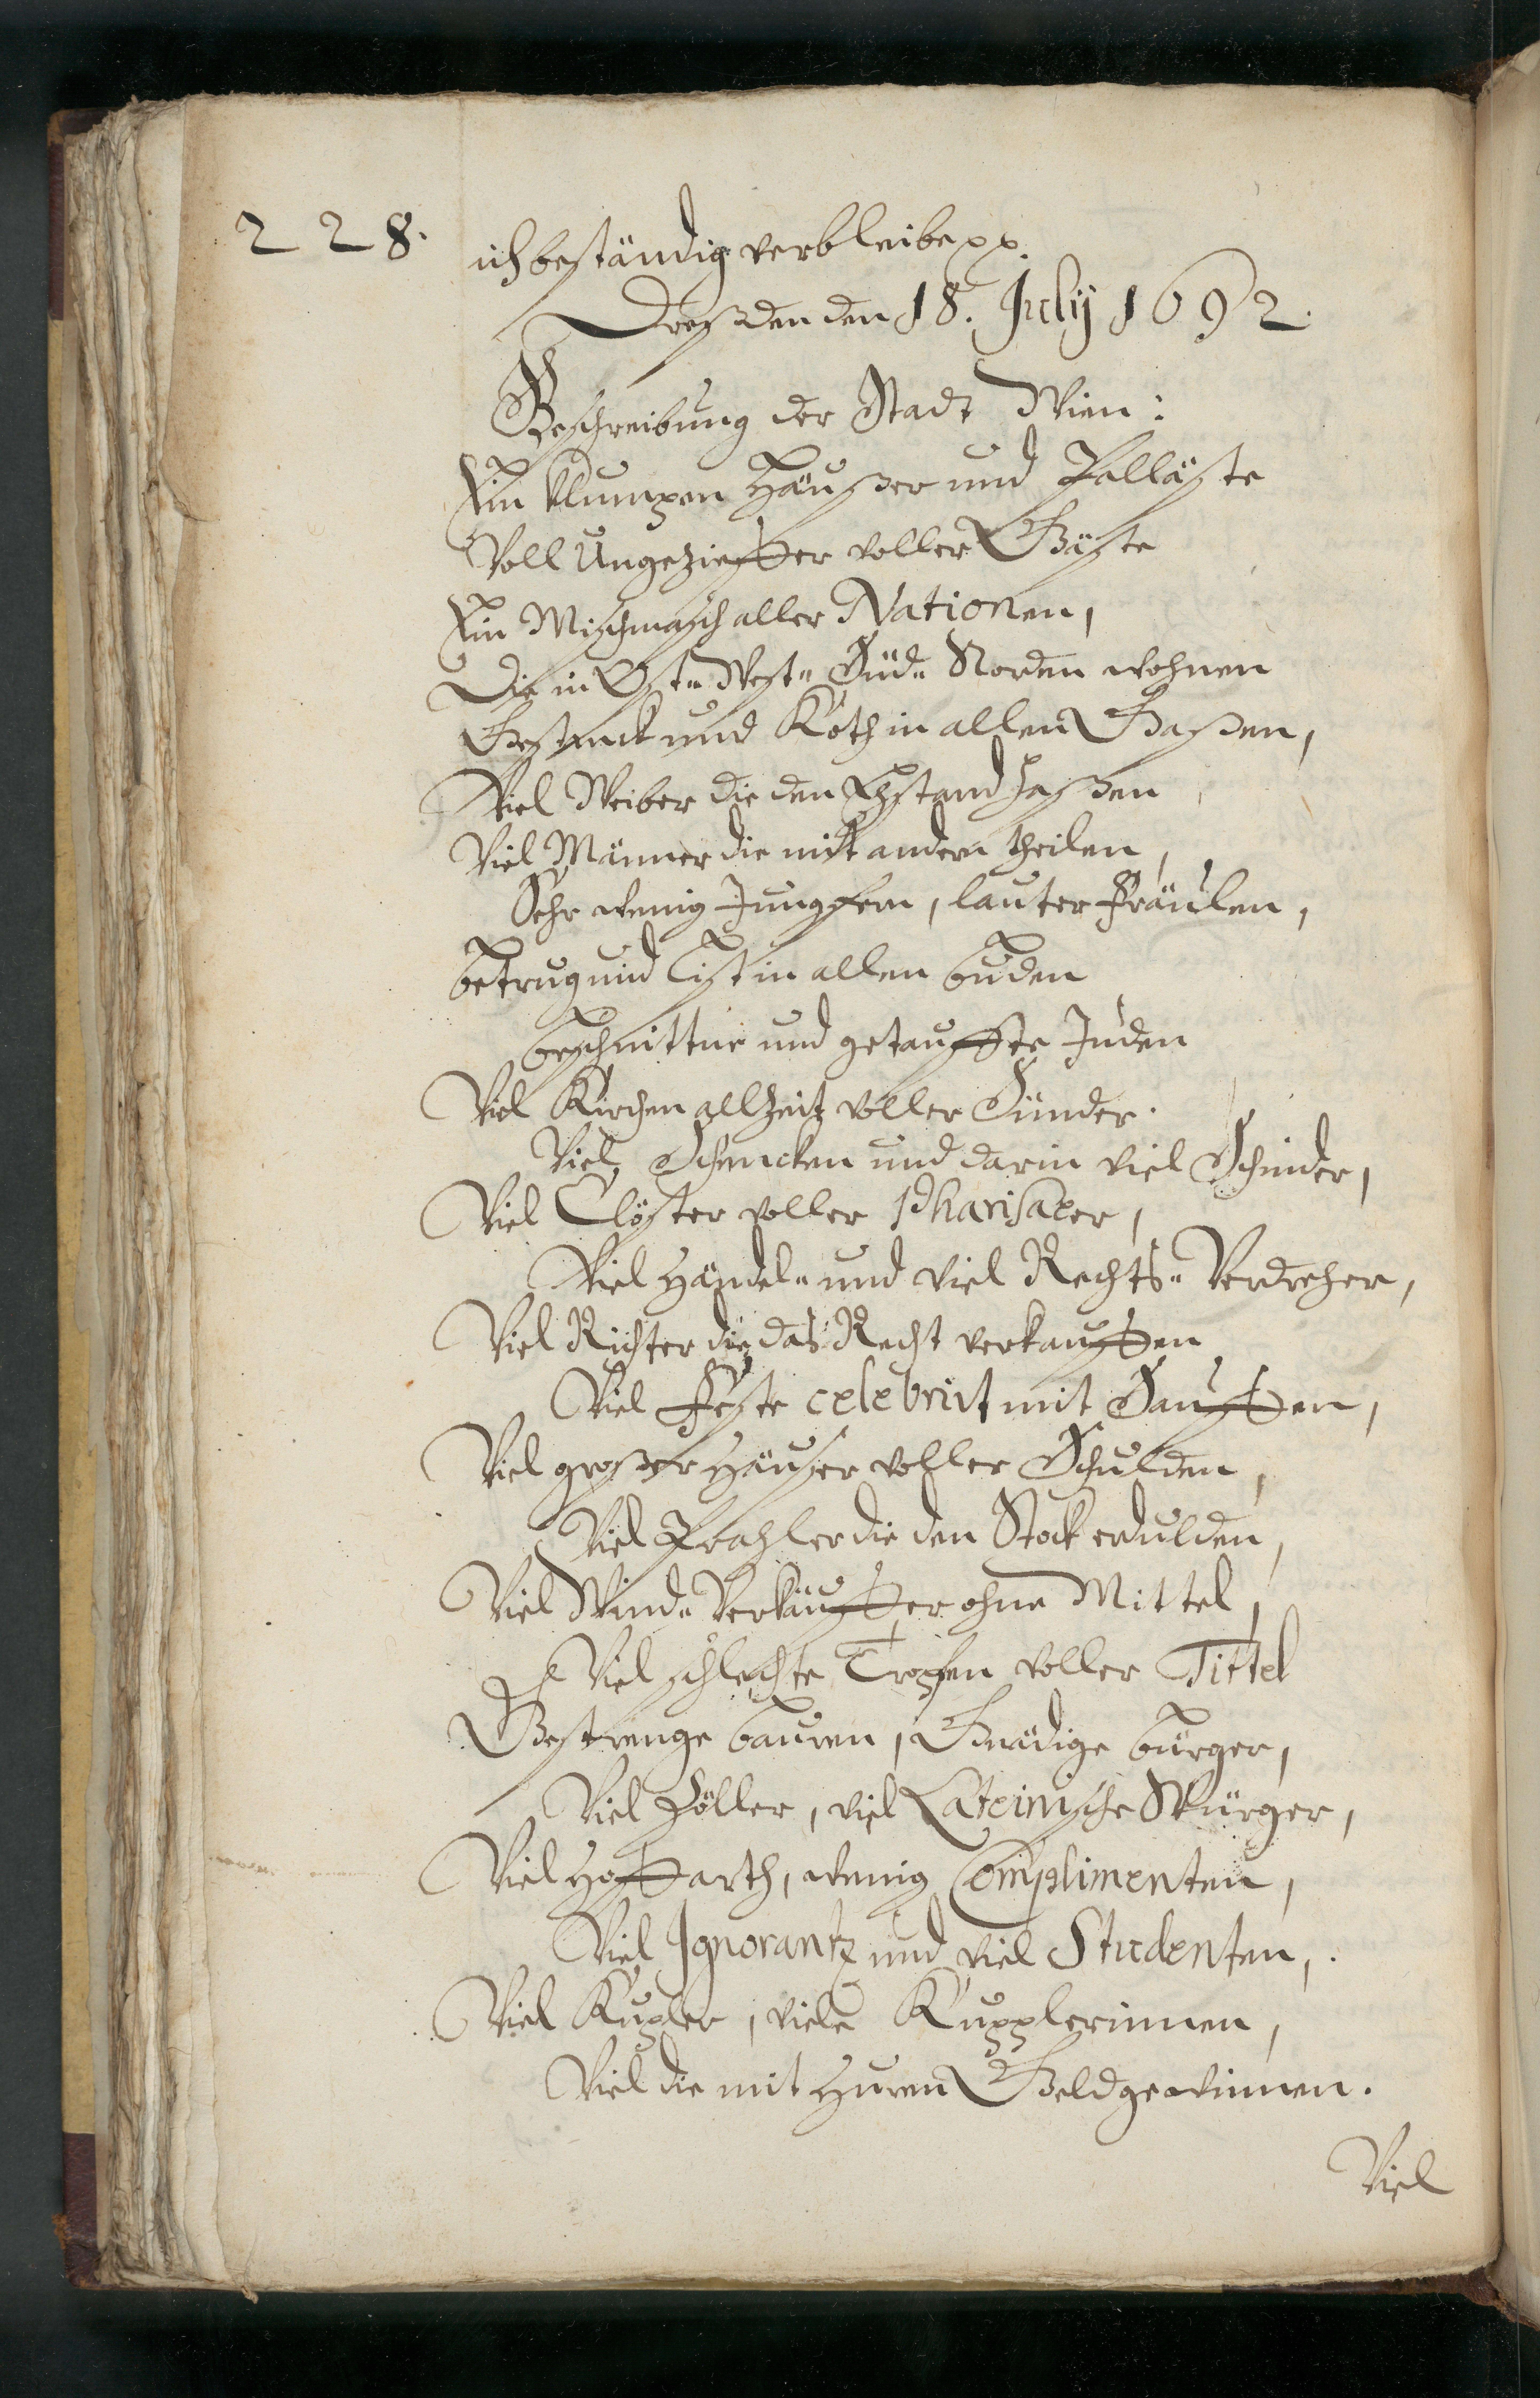 228.
ich beständig verbleibe pp.
Dreßden den 18. July 1692.
Beschreibung der Stadt Wien:
Ein klumpen Häußer und Palläste
Voll Ungezieffer voller Gäste
Ein Mischmasch aller Nationen,
Die in Ost- West- Süd- Norden wohnen
Gestanck und Koth in allen Gaßen,
Viel Weiber die den Ehstand haßen
Viel Männer die mit andern theilen,
Sehr wenig Jungfern, lauter Fräulen,
Betrug und List in allen Buden
Beschnittne und getauffte Juden
Viel Kirchen allzeit voller Sünder.
Viel Schencken und darin viel Schinder,
Viel Clöster voller Pharisaeer,
Viel Händel- und viel Rechts-Verdreher,
Viel Richter die das Recht verkauffen
Viel Feste celebrirt mit Sauffen,
Viel großer Häuser voller Schulden,
Viel Prahler die den Stock erdulden,
Viel Wind-Verkäuffer ohne Mittel,
Viel schlechte Tropfen voller Tittel
Gestrenge Bauren, Gnädige Bürger,
Viel Zöller, viel Lateinische Würger,
Viel Hoffarth, wenig Complimenten,
Viel Ignorantz und viel Studenten,
Viel Kupler, viele Kupplerinnen,
Viel die mit Huren Geld gewinnen.
Viel